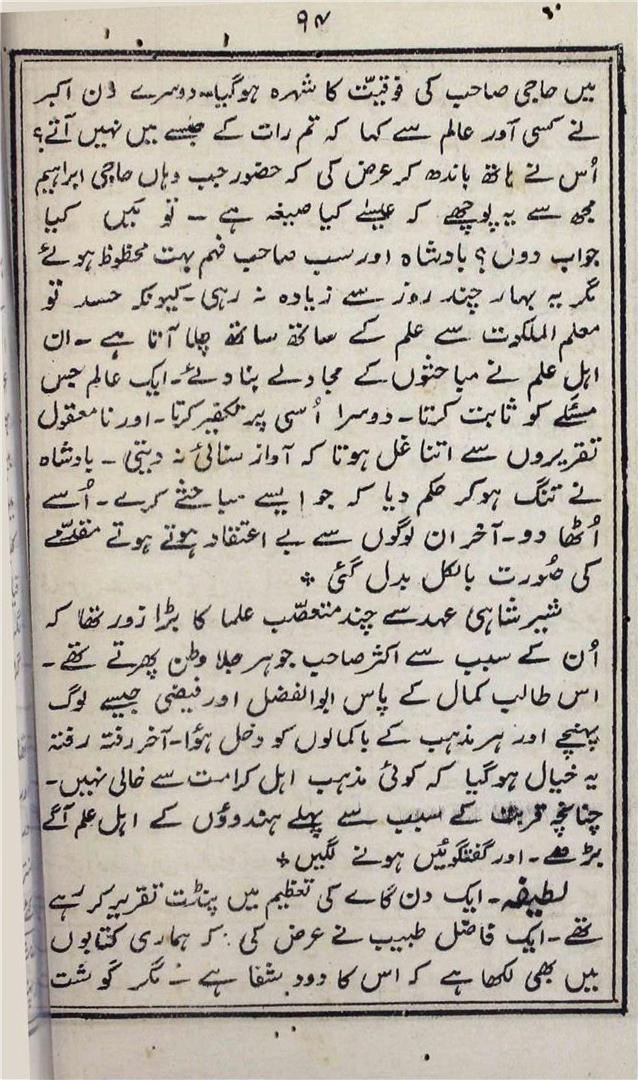 ۹۷
میں حاجی صاحب کی فوقیّت کا شہرہ ہوگیا۔ دوسرے دن اکبر
نے کسی آور عالم سے کہا کہ تم رات کے جلسے میں نہیں آتے؟
اُس نے ہاتھ باندھ کر عرض کی کہ حضور جب وہاں حاجی ابراہیم
مجھ سے یہ پوچھے کہ عیسٰے کیا صیغہ ہے ۔ تو مَیں کیا
جواب دوں؟ بادشاہ اور سب صاحب فہم بہت محظوظ ہوئے
مگر یہ بہار چند روز سے زیادہ نہ رہی۔ کیونکہ حسد تو
معلم الملکوت سے علم کے ساتھ ساتھ چلا آتا ہے ۔ ان
اہلِ علم نے مباحثوں کے مجادلے بنا دئے۔ ایک عالم جس
مسئلے کو ثابت کرتا۔ دوسرا اُسی پر تکفیر کرتا۔ اور نامعقول
تقریروں سے اتنا غل ہوتا کہ آواز سنائی نہ دیتی ۔ بادشاہ
نے تنگ ہوکر حکم دیا کہ جو ایسے مباحثے کرے۔ اُسے
اُٹھا دو۔ آخر ان لوگوں سے بے اعتقاد ہوتے ہوتے مقدّمے
کی صُورت بالکل بدل گئی ٭
شیرشاہی عہد سے چند متعصّب علما کا بڑا زور تھا کہ
اُن کے سبب سے اکثر صاحب جوہر جلا وطن پھرتے تھے ۔
اس طالب کمال کے پاس ابوالفضل اور فیضی جیسے لوگ
پہنچے اور ہر مذہب کے باکمالوں کو دخل ہوٗا۔ آخر رفتہ رفتہ
یہ خیال ہوگیا کہ کوئی مذہب اہل کرامت سے خالی نہیں۔
چنانچہ قربت کے سبب سے پہلے ہندوؤں کے اہل علم آگے
بڑھے ۔ اور گفتگوئیں ہونے لگیں ٭
لطیفہ ۔ ایک دن گاے کی تعظیم میں پنڈت تقریر کر رہے
تھے ۔ ایک فاضل طبیب نے عرض کی کہ ہماری کتابوں
میں بھی لکھا ہے کہ اس کا دودھ شفا ہے ۔ مگر گوشت